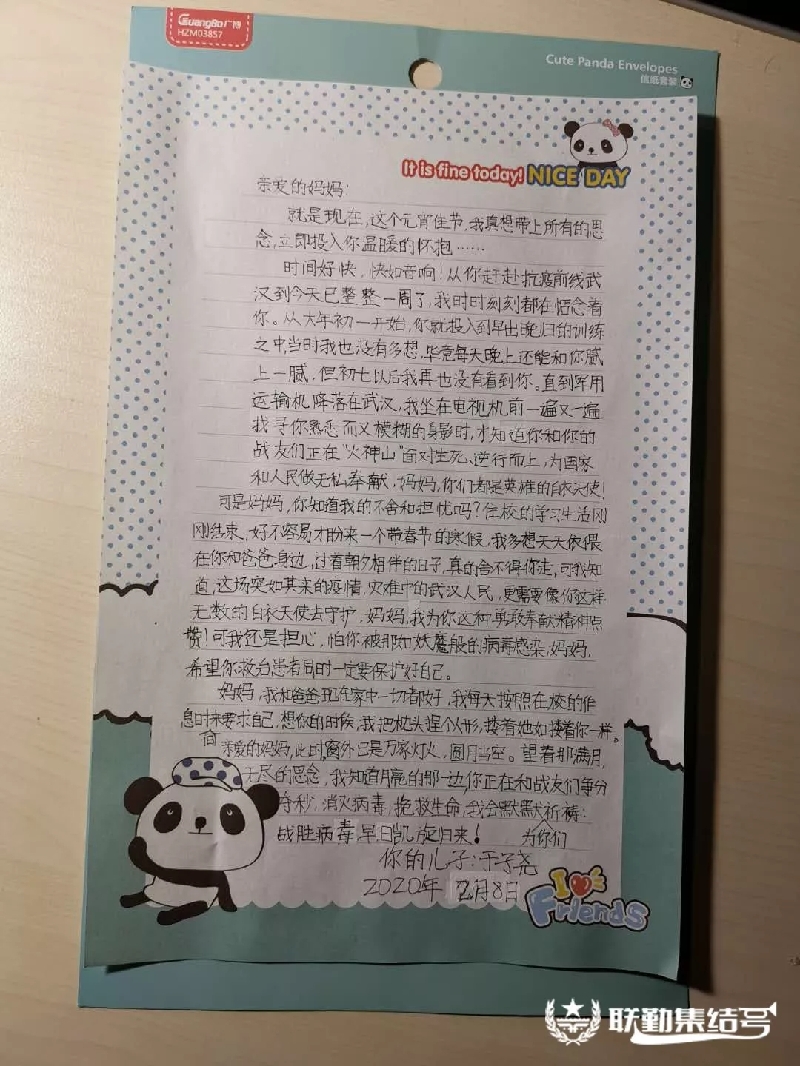 GuangBo广博
HZM03857
Cute Panda Envelopes
信纸套装
It is fine today! NICE DAY
亲爱的妈妈:
就是现在,这个元宵佳节,我真想带上所有的思
念,立即投入你温暖的怀抱……
时间好快,快如音响!从你赶赴抗疫前线武
汉到今天已整整一周了,我时时刻刻都在惦念着
你。从大年初一开始,你就投入到早出晚归的训练
之中,当时我也没有多想,毕竟每天晚上还能和你腻
上一腻,但初七以后我再也没有看到你。直到军用
运输机降落在武汉,我坐在电视机前一遍又一遍
找寻你熟悉而又模糊的身影时,才知道你和你的
战友们正在“火神山”面对生死、逆行而上,为国家
和人民做无私奉献,妈妈,你们都是英雄的白衣天使!
可是妈妈,你知道我的不舍和担忧吗?住校的学习生活刚
刚结束,好不容易才盼来一个带春节的寒假,我多想天天依偎
在你和爸爸身边,过着朝夕相伴的日子,真的舍不得你走,可我知
道,这场突如其来的疫情,灾难中的武汉人民,更需要像你这样
无数的白衣天使去守护,妈妈,我为你这种勇敢奉献精神点
赞!可我还是担心,怕你被那如妖魔般的病毒感染,妈妈,
希望你救治患者同时一定要保护好自己。
妈妈,我和爸爸现在家中一切都好,我每天按照在校的作
息时间来要求自己,想你的时候,我把枕头捏个人形,搂着她如搂着你一样。
亲爱的妈妈,此时窗外已是万家灯火,圆月当空。望着那满月,
无尽的思念,我知道月亮的那一边,你正在和战友们争分
夺秒,消灭病毒,挽救生命,我会默默为你们祈祷:
战胜病毒早日凯旋归来!
你的儿子:于子尧
2020年2月8日
I Friends
联勤集结号